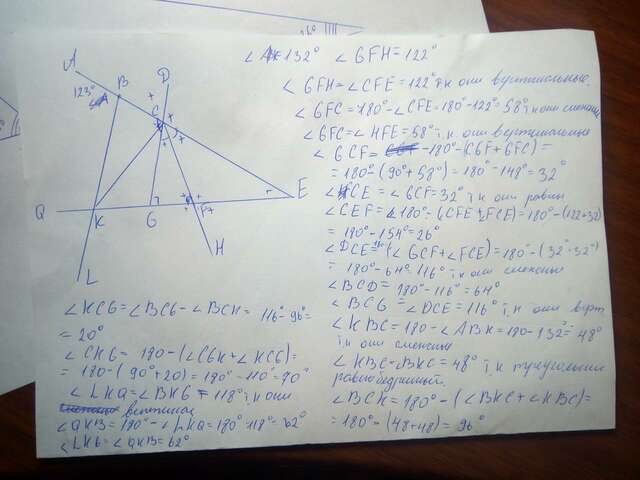 ∠A 132° ∠GFH=122°
∠GFH=∠CFE=122° т.к они вертикальные.
∠GFC=180°-∠CFE=180°-122°=58° т.к они смежные
∠GFC=∠HFE=58° т.к они вертикальные
∠GCF= 180°-(CGF+GFC)=
=180°-(90°+58°)=180°-148°=32°
∠FCE=∠GCF=32° т.к они равны
∠CEF=∠180°-(CFE+FCE)=180°-(122+32)
=180°-154°=26°
∠DCE=(∠GCF+∠FCE)=180°-(32°-32°)
=180°-64° 116° т.к они смежные
∠BCD=180°-116°=64°
∠BCG=∠DCE=116° т.к они верт.
∠KBC=180-∠ABK=180-132°=48°
т.к они смежные
∠KBC=∠BKC=48° т.к треугольник
равнобедренный.
∠BCK=180°-(∠BKC+∠KBC)=
=180°-(48+48)=96°
A
B
D
123°
C
E
Q
K
G
F
H
L
∠KCG=∠BCG-∠BCK=116°-96°=
=20°
∠CKG=180-(∠CGK+∠KCG)=
=180-(90°+20)=180°-110°=70°
∠LKQ=∠BKG=118° т.к они
∠QKB=180°-∠LKQ=180°-118°=62°
∠LKG=∠QKB=62°